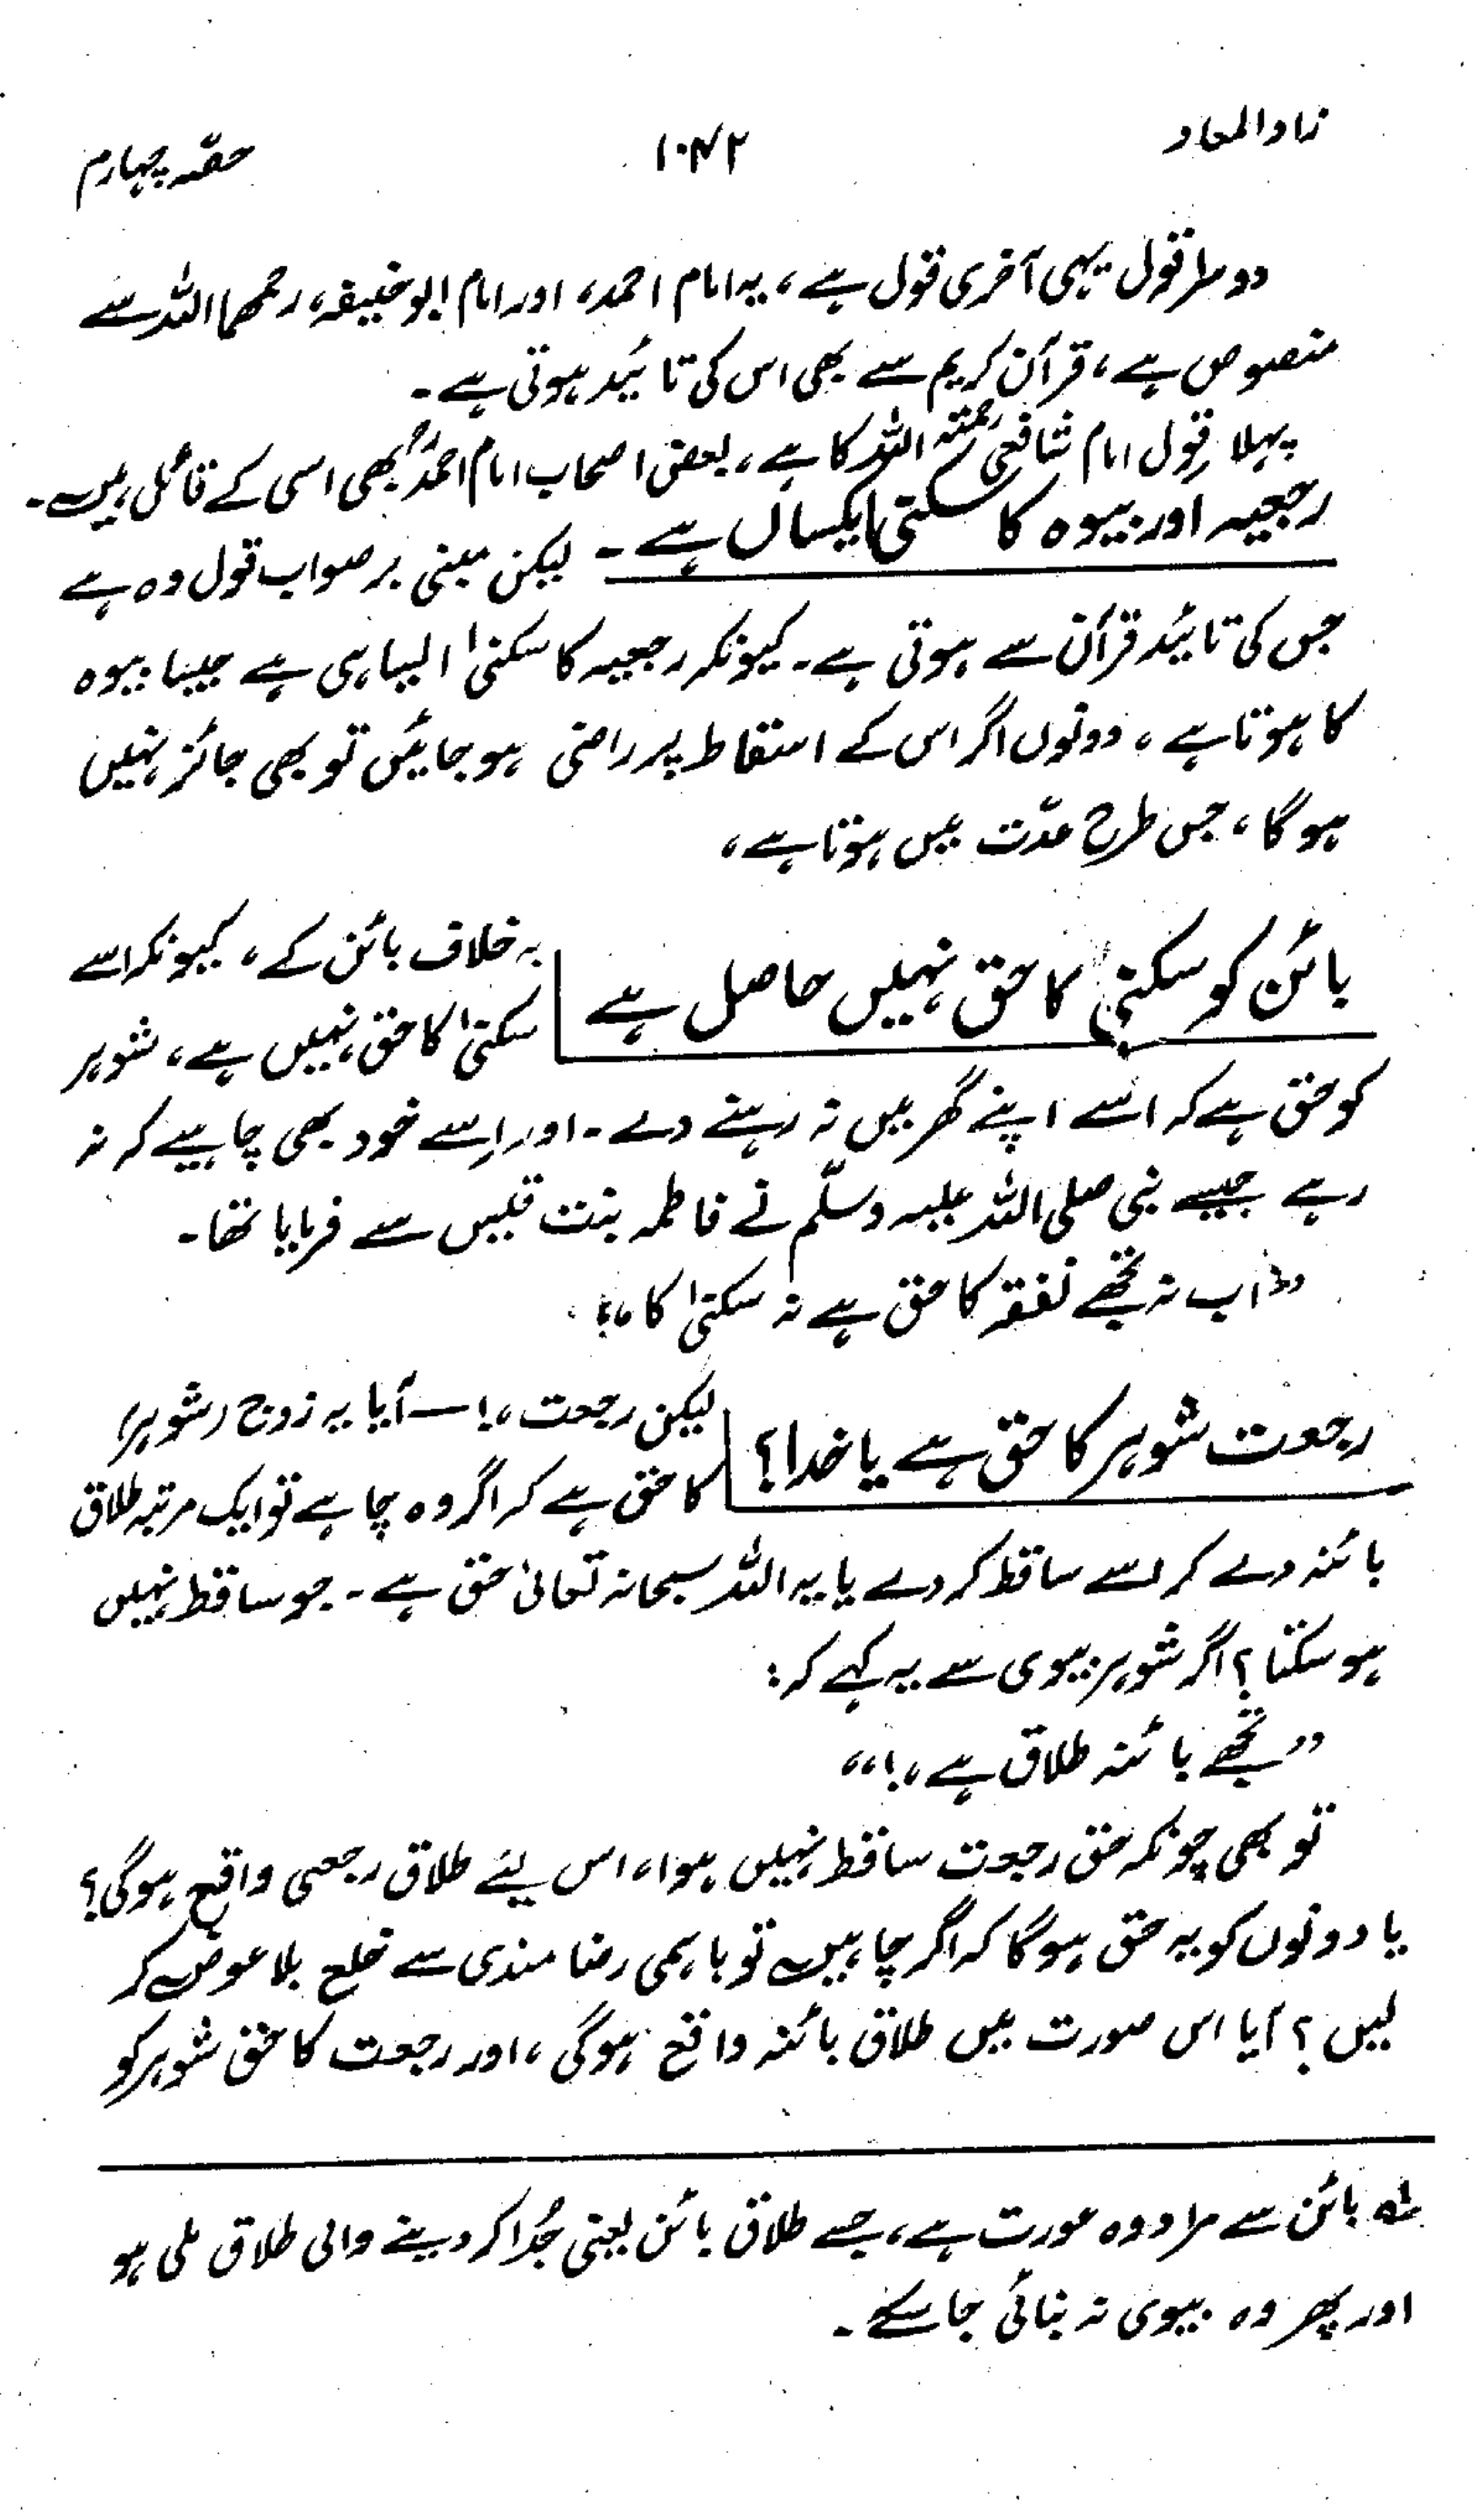 زاد المعاد ۱۰۴۲ حصّہ چہارم
دوسرا قول یہی آخری قول ہے، یہ امام احمد، اور امام ابو حنیفہ، رحمھما اللہ سے
منصوص ہے، قرآن کریم سے بھی اس کی تائید ہوتی ہے۔
پہلا قول امام شافعی رحمتہ اللہ کا ہے، بعض اصحاب امام احمدؒ بھی اسی کے قائل ہیں۔
رجعیہ اور بیوہ کا سکنیٰ یکساں ہے۔ لیکن مبنی بر صواب قول وہ ہے
جس کی تائید قرآن سے ہوتی ہے۔ کیونکہ رجعیہ کا سکنیٰ ایسا ہی ہے جیسا بیوہ
کا ہوتا ہے، دونوں اگر اس کے اسقاط پر راضی ہو جائیں تو بھی جائز نہیں
ہو گا، جس طرح عدّت میں ہوتا ہے،
بائن کو سکنیٰ کا حق نہیں حاصل ہے بہ خلاف بائن کے، کیونکہ اسے
سکنیٰ کا حق نہیں ہے، شوہر
کو حق ہے کہ اسے اپنے گھر میں نہ رہنے دے۔ اور اِسے خود بھی چاہیے کہ نہ
رہے جیسے نبی صلی اللہ علیہ وسلّم نے فاطمہ بنت قیس سے فرمایا تھا۔
”اب نہ تجھے نفقہ کا حق ہے نہ سکنیٰ کا،،!
رجعت شوہر کا حق ہے یا خدا؟ لیکن رجعت،! ــ آیا یہ زوج (شوہر)
کا حق ہے کہ اگر وہ چاہے تو ایک مرتبہ طلاق
بائنہ دے کر اسے ساقط کر دے یا یہ اللہ سبحانہ تعالیٰ حق ہے۔ جو ساقط نہیں
ہو سکتا؟ اگر شوہر بیوی سے یہ کہے کہ:
”تجھے بائنہ طلاق ہے،!،،
تو بھی چونکہ حق رجعت ساقط نہیں ہوا، اس لیئے طلاق رجعی واقع ہوگی؟
یا دونوں کو یہ حق ہوگا کہ اگر چاہیں تو باہمی رضا مندی سے خلع بلا عوض کر
لیں؟ آیا اس صورت میں طلاق بائنہ واقع ہوگی، اور رجعت کا حق شوہر کو
لہ بائن سے مراد وہ عورت ہے، جسے طلاق بائن یعنی جُدا کر دینے والی طلاق ملی ہو
اور پھر وہ بیوی نہ بنائی جا سکے۔